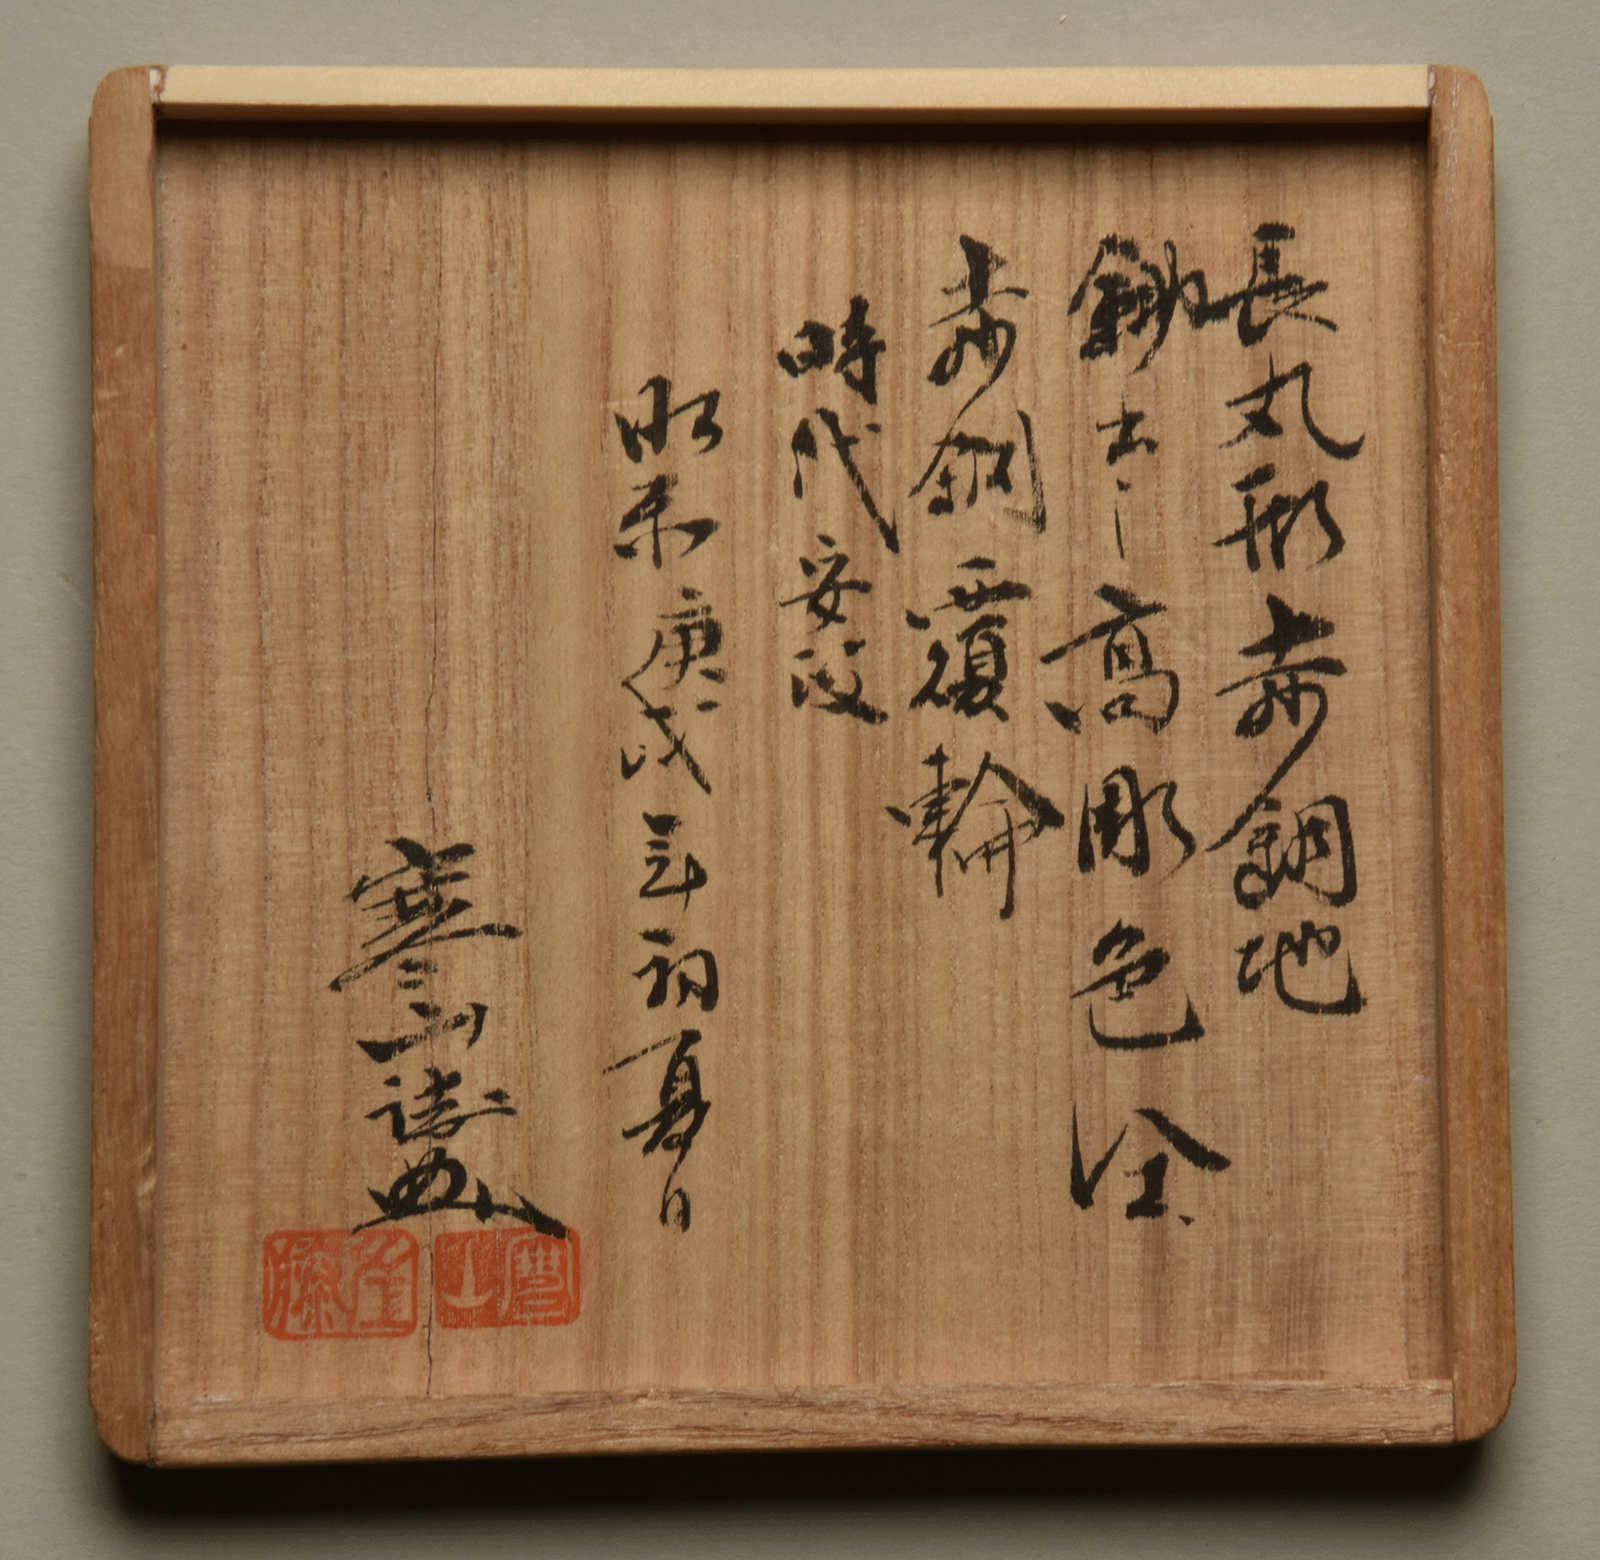 長丸形赤銅地
鋤出し高彫色絵
赤銅覆輪
時代安政
昭和庚戌年初夏日
寒山誌
寒山